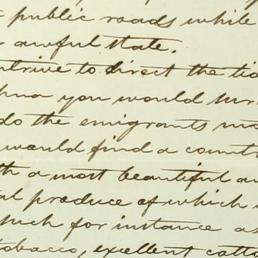 public roads while
awful state.
to direct the
you would
do the emigrants
would find a
a most beautiful
produce of which
such for instance as
tobacco, excellent